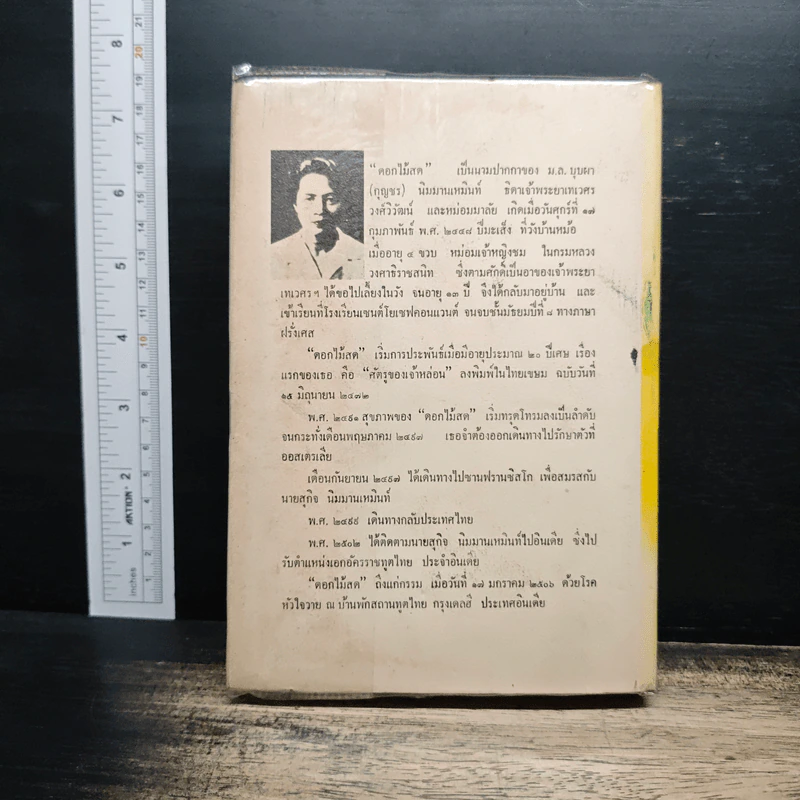 "ดอกไม้สด" เป็นนามปากกาของ ม.ล. บุบผา
(กุญชร) นิมมานเหมินท์ ธิดาเจ้าพระยาเทเวศร
วงศ์วิวัฒน์ และหม่อมมาลัย เกิดเมื่อวันศุกร์ที่ ๑๗
กุมภาพันธ์ พ.ศ. ๒๔๔๘ ปีมะเส็ง ที่วังบ้านหม้อ
เมื่ออายุ ๔ ขวบ หม่อมเจ้าหญิงชม ในกรมหลวง
วงศาธิราชสนิท ซึ่งตามศักดิ์เป็นอาของเจ้าพระยา
เทเวศร ฯ ได้ขอไปเลี้ยงในวัง จนอายุ ๑๓ ปี จึงได้กลับมาอยู่บ้าน และ
เข้าเรียนที่โรงเรียนเซนต์โยเซฟคอนแวนต์ จนจบชั้นมัธยมปีที่ ๘ ทางภาษา
ฝรั่งเศส
"ดอกไม้สด" เริ่มการประพันธ์เมื่อมีอายุประมาณ ๒๐ ปีเศษ เรื่อง
แรกของเธอ คือ "ศัตรูของเจ้าหล่อน" ลงพิมพ์ในไทยเขษม ฉบับวันที่
๑๕ มิถุนายน ๒๔๗๒
พ.ศ. ๒๔๙๑ สุขภาพของ "ดอกไม้สด" เริ่มทรุดโทรมลงเป็นลำดับ
จนกระทั่งเดือนพฤษภาคม ๒๔๙๗ เธอจำต้องออกเดินทางไปรักษาตัวที่
ออสเตรเลีย
เดือนกันยายน ๒๔๙๗ ได้เดินทางไปซานฟรานซิสโก เพื่อสมรสกับ
นายสุกิจ นิมมานเหมินท์
พ.ศ. ๒๔๙๙ เดินทางกลับประเทศไทย
พ.ศ. ๒๕๐๒ ได้ติดตามนายสุกิจ นิมมานเหมินท์ไปอินเดีย ซึ่งไป
รับตำแหน่งเอกอัครราชทูตไทย ประจำอินเดีย
"ดอกไม้สด" ถึงแก่กรรม เมื่อวันที่ ๑๗ มกราคม ๒๕๐๖ ด้วยโรค
หัวใจวาย ณ บ้านพักสถานทูตไทย กรุงเดลฮี ประเทศอินเดีย
8
7
6
5
4
3
2
1
21
20
19
18
17
16
15
14
13
12
11
10
9
8
7
6
5
4
3
2
1
AKTION